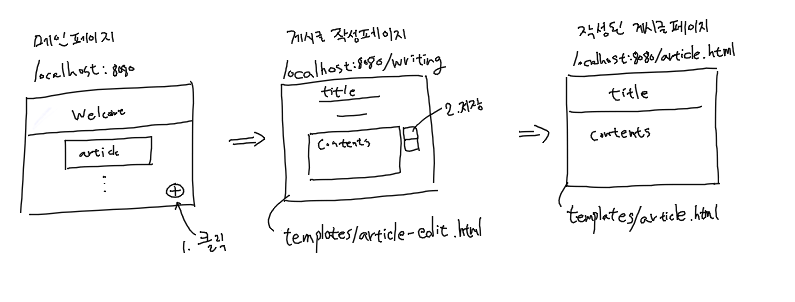 메인 페이지
/localhost:8080
Welcome
article
+
1. 클릭
게시글 작성페이지
/localhost:8080/writing
title
Contents
2. 저장
templates/article-edit.html
작성된 게시글 페이지
/localhost:8080/article.html
title
Contents
templates/article.html